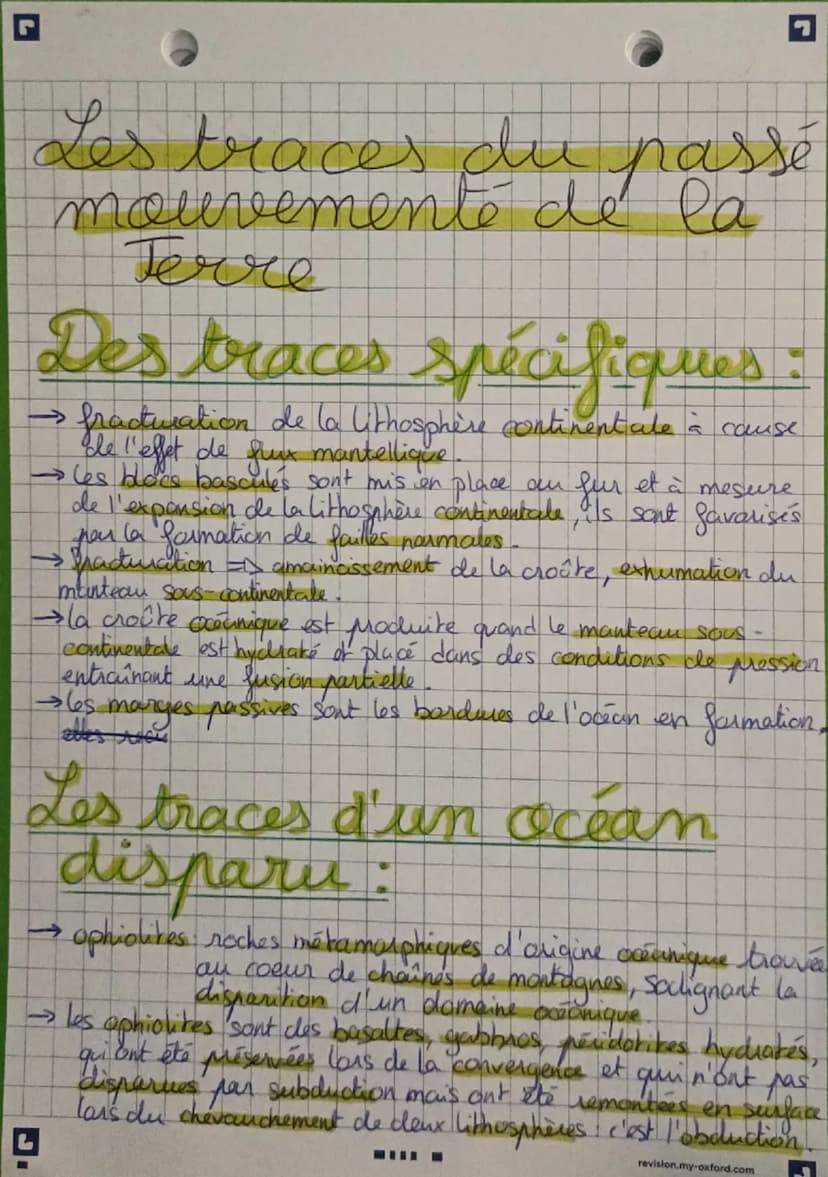 Les traces du passé
mouvementé de la
Terre
Des traces spécifiques :
→ fracturation de la lithosphère continentale à cause
de l'effet de flux mantellique.
→ Les blocs basculés sont mis en place au fur et à mesure
de l'expansion de la lithosphère continentale, ils sont favorisés
par la formation de failles normales.
→ fracturation => amaincissement de la croûte, exhumation du
manteau sous-continentale.
→ la croûte océanique est produite quand le manteau sous-
continentale est hydraté et placé dans des conditions de pression
entraînant une fusion partielle.
→ les marges passives sont les bordures de l'océan en formation.
Les traces d'un océan
disparu :
→ ophiolites : roches métamorphiques d'origine océanique trouvée
au coeur de chaînes de montagnes, soulignant la
disparition d'un domaine océanique.
→ les ophiolites sont des basaltes, gabbros, péridotites hydratés,
qui ont été préservées lors de la convergence et qui n'ont pas
disparues par subduction mais ont été remontées en surface
lors du chevauchement de deux lithosphères : c'est l'obduction.
revision.my-oxford.com